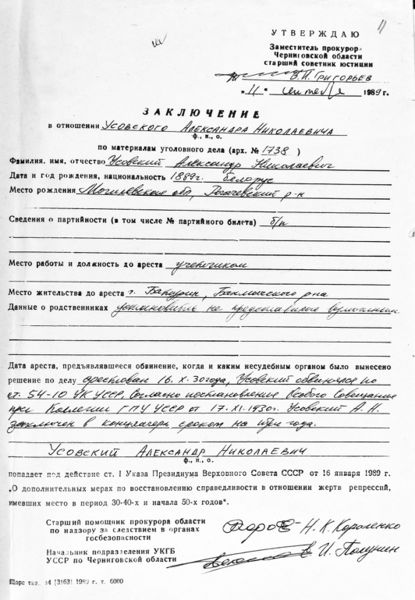 11
УТВЕРЖДАЮ
Заместитель прокурора
Черниговской области
старший советник юстиции
В.И. Григорьев
" 11 " сентября 1989 г.
ЗАКЛЮЧЕНИЕ
в отношении Усовского Александра Николаевича
ф., и., о.
по материалам уголовного дела (арх. № 1738 )
Фамилия, имя, отчество Усовский Александр Николаевич
Дата и год рождения, национальность 1889г. белорус
Место рождения Могилевская обл., р-н
Сведения о партийности (в том числе № партийного билета) б/п
Место работы и должность до ареста учетчиком
Место жительства до ареста г. Батурин, Бахмачского р-на
Данные о родственниках установить не представилось возможным
Дата ареста, предъявлявшееся обвинение, когда и каким несудебным органом было вынесено
решение по делу арестован 16.X.30года, Усовский обвинялся по
ст. 54-10 УК УССР. Согласно постановления Особого Совещания
при Коллегии ГПУ УССР от 17.XI.1930г. Усовский А.Н.
заключен в концлагерь сроком на три года.
Усовский Александр Николаевич
ф., и., о.
попадает под действие ст. 1 Указа Президиума Верховного Совета СССР от 16 января 1989 г.
„О дополнительных мерах по восстановлению справедливости в отношении жертв репрессий,
имевших место в период 30-40-х и начала 50-х годов".
Старший помощник прокурора области
по надзору за следствием в органах
госбезопасности
Н.К. Короленко
Начальник подразделения УКГБ
УССР по Черниговской области
И. Полунин
Щорс тип. з4 [3163] 1989 г. т. 6000